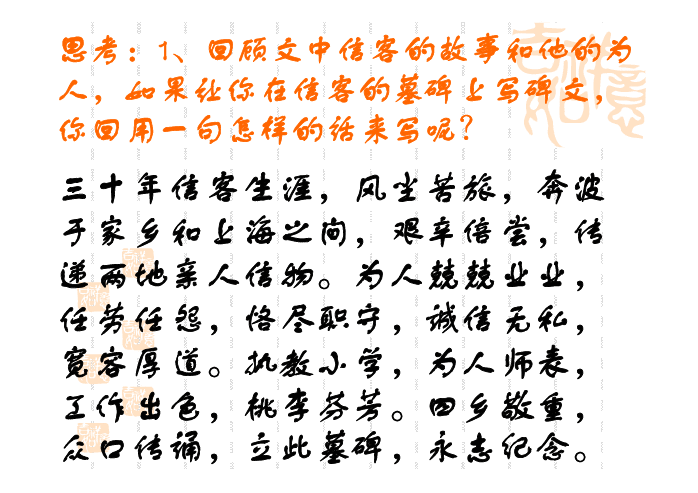 思考：1、回顾文中信客的故事和他的为
人，如果让你在信客的墓碑上写碑文，
你回用一句怎样的话来写呢？
三十年信客生涯，风尘苦旅，奔波
于家乡和上海之间，艰辛倍尝，传
递两地亲人信物。为人兢兢业业，
任劳任怨，恪尽职守，诚信无私，
宽容厚道。执教小学，为人师表，
工作出色，桃李芬芳。四乡敬重，
众口传诵，立此墓碑，永志纪念。